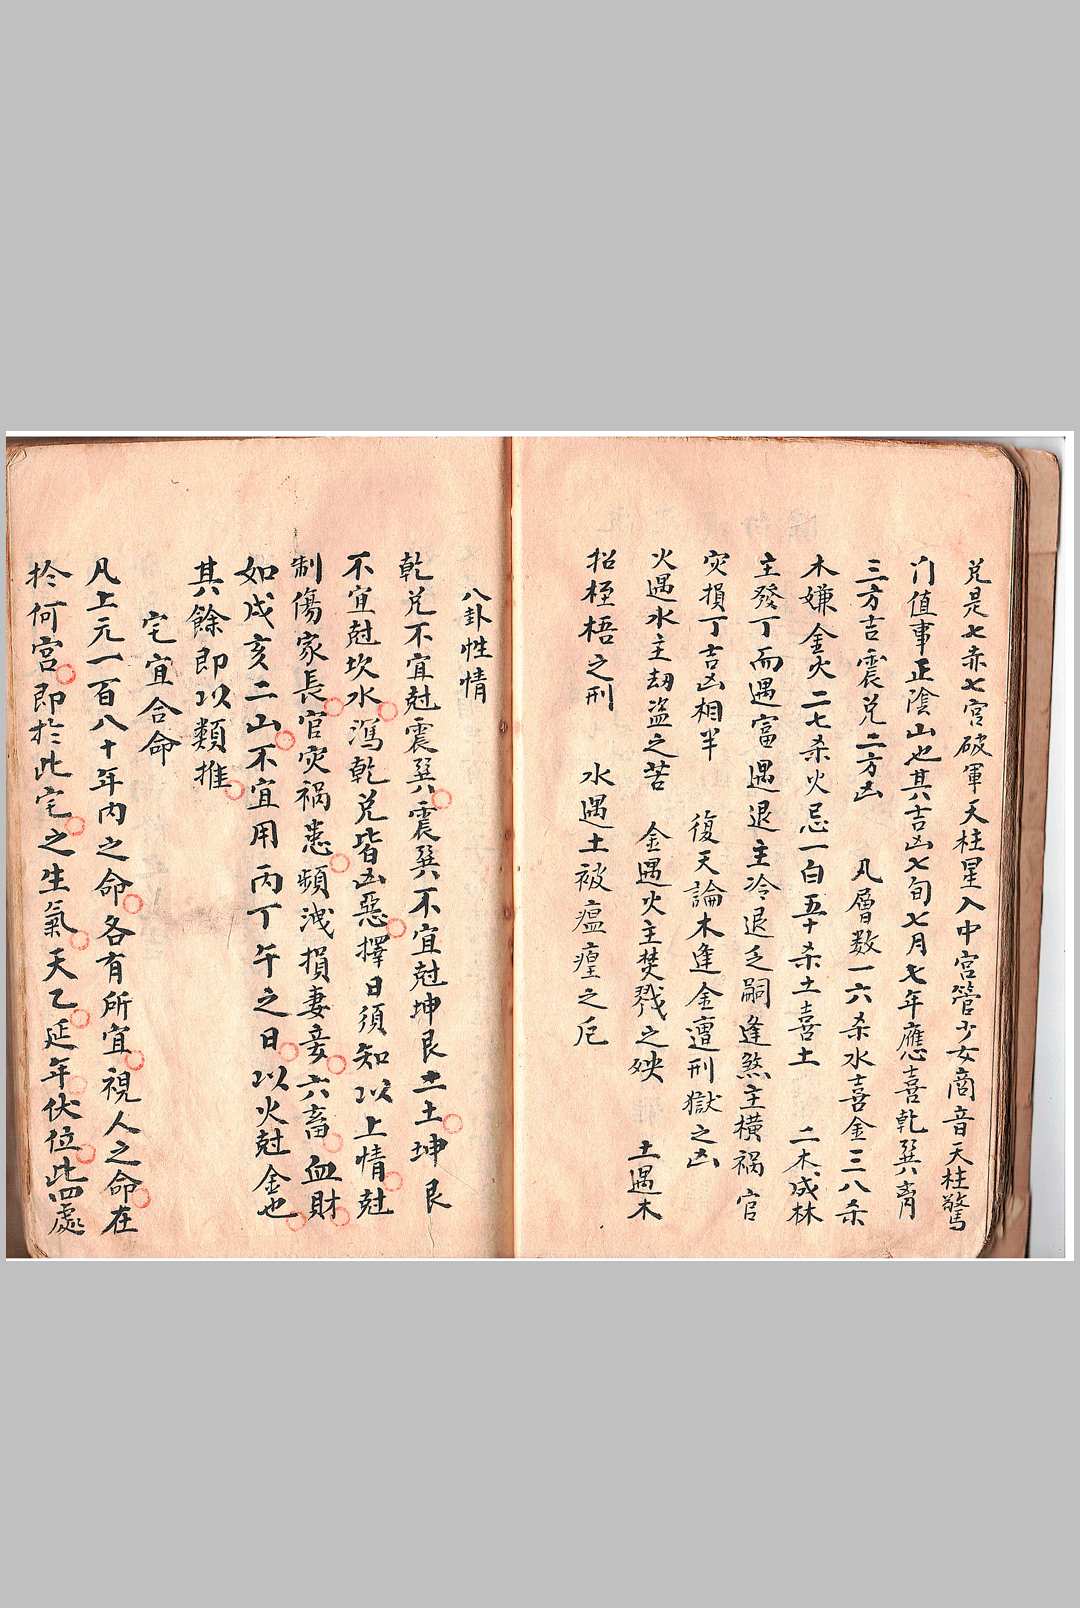 兑是七赤七宮破軍天柱星入中宮管少女商音天柱驚
门值事正陰山也其吉凶七旬七月七年應喜乾巽离
三方吉震兑二方凶 凡層数一六杀水喜金三八杀
木嫌金火二七杀火忌一白五十杀土喜土 二木成林
主發丁而遇富遇退主冷退乏嗣逢煞主横祸官
灾損丁吉凶相半 復天論木逢金遭刑獄之凶
火遇水主劫盗之苦 金遇火主焚戮之殃 土遇木
招桎梧之刑 水遇土被瘟瘟之厄
八卦性情
乾兑不宜尅震巽震巽不宜尅坤艮土土坤艮
不宜尅坎水瀉乾兑皆凶惡擇日須知以上情尅
制傷家長官灾祸患頻洩損妻妾六畜血財
如戌亥二山不宜用丙丁午之日以火尅金也
其餘即以類推
宅宜合命
凡上元一百八十年内之命各有所宜視人之命在
扵何宮即扵此宅之生氣天乙延年伏位此四處